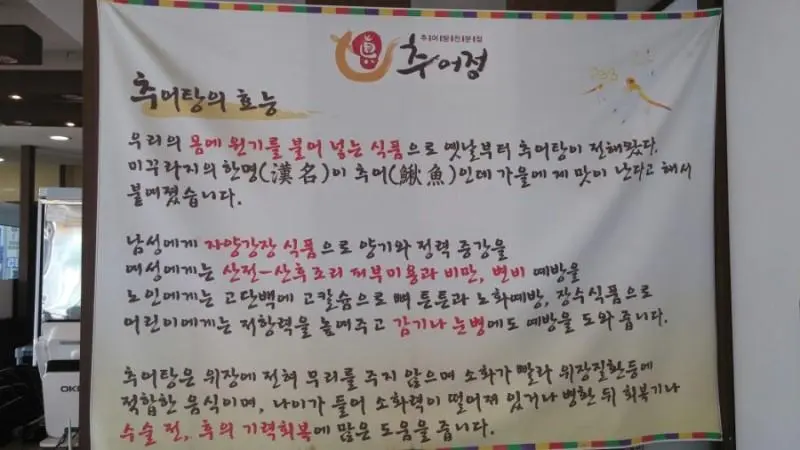 추어탕전문점
眞 추어정
추어탕의 효능
우리의 몸에 원기를 불어 넣는 식품으로 옛날부터 추어탕이 전해왔다.
미꾸라지의 한명(漢名)이 추어(鰍魚)인데 가을에 제 맛이 난다고 해서
붙여졌습니다.
남성에게 자양강장 식품으로 양기와 정력 증강을
여성에게는 산전-산후조리 피부미용과 비만, 변비 예방을
노인에게는 고단백에 고칼슘으로 뼈 튼튼과 노화예방, 장수식품으로
어린이에게는 저항력을 높여주고 감기나 눈병에도 예방을 도와 줍니다.
추어탕은 위장에 전혀 무리를 주지 않으며 소화가 빨라 위장질환등에
적합한 음식이며, 나이가 들어 소화력이 떨어져 있거나 병한 뒤 회복기나
수술 전, 후의 기력회복에 많은 도움을 줍니다.